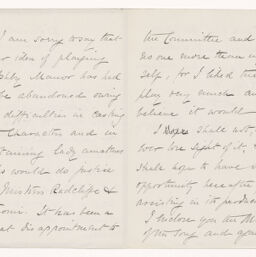 I am sorry to say that
r idea of playing
Ashby Manor has had
be abandoned owing
difficulties in casting
Characters and in
taining lady amateurs
would do justice
Mistress Radclyffe &
It has been a
at disappointment to
the Committee and
no one more than my
self, for I liked the
play very much and
believe it would
I hope I shall not
ever lose sight of it, &
shall hope to have
opportunity hereafter
assisting in its produc
I inclose you the M
of the song and